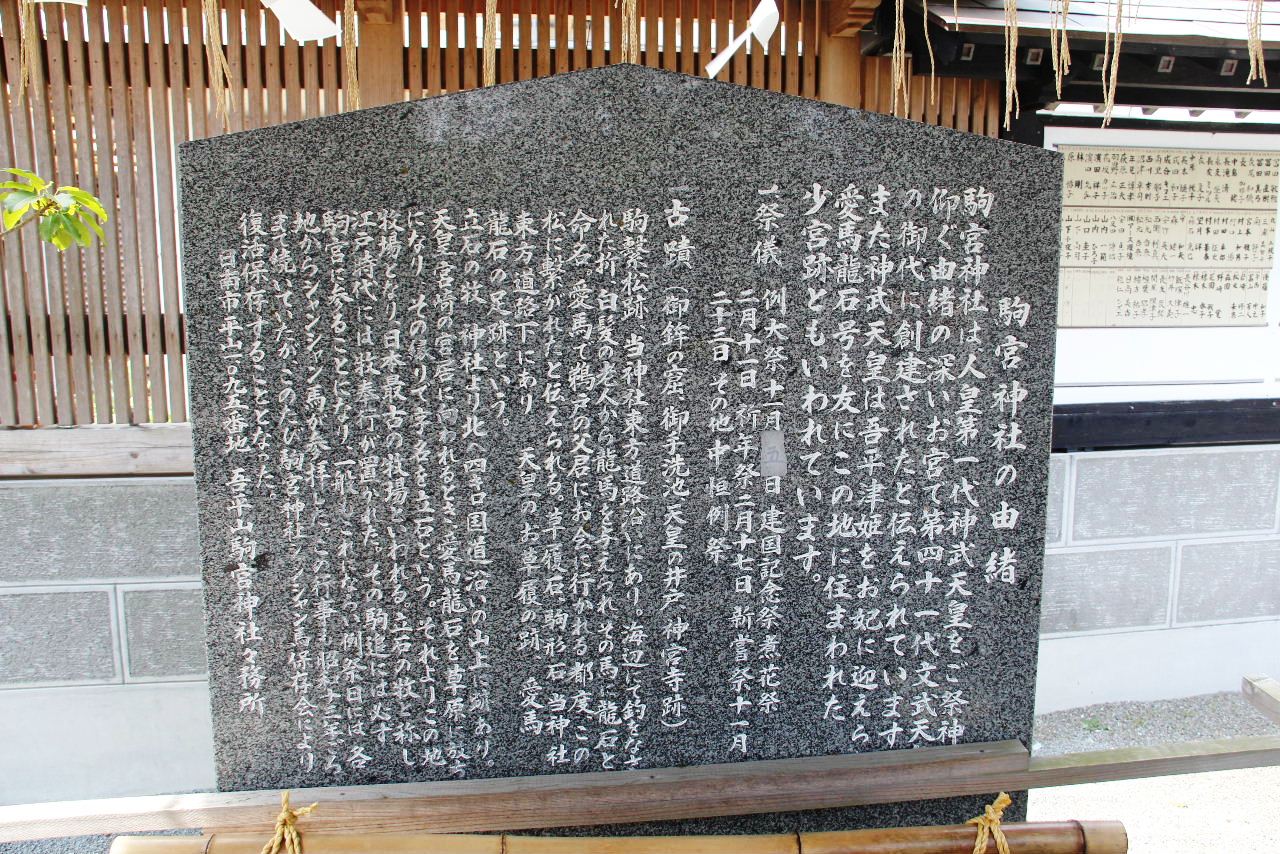 駒宮神社の由緒
駒宮神社は人皇第一代神武天皇をご祭神
仰ぐ由緒の深いお宮で第四十一代文武天
の御代に創建されたと伝えられています
また神武天皇は吾平津姫をお妃に迎えら
愛馬龍石号を友にこの地に住まわれた
少宮跡ともいわれています。
一祭儀 例大祭十一月五日 建国記念祭煮花祭
二月十一日 祈年祭二月十七日 新嘗祭十一月
二十三日 その他中恒例祭
一古蹟(御鉾の窟 御手洗池 天皇の井戸 神宮寺跡)
駒繫松跡 当神社東方道路沿いにあり。海辺にて釣をなさ
れた折、白髪の老人から龍馬を与えられ、その馬に龍石と
命名、愛馬で鵜戸の父君にお会に行かれる都度、この
松に繫がれたと伝えられる。草履石、駒形石 当神社
東方道路下にあり 天皇のお草履の跡、愛馬
龍石の足跡という。
立石の牧 神社より北へ四キロ国道沿いの山上に跡あり。
天皇宮崎の宮居に向われるとき、愛馬龍石を草原に放
になり、その縁りで字名を立石という。それよりこの地
牧場となり、日本最古の牧場といわれる。立石の牧と称し
江戸時代には牧奉行が置かれた。その駒追には必ず
駒宮に参ることになり、一般もこれにならい例祭日には各
地からシャンシャン馬が参拝した。この行事も昭和十三年ごろ
まで続いていたが、このたび駒宮神社シャンシャン馬保存会により
復活保存することとなった。
日南市平山一〇九五番地 吾平山駒宮神社々務所